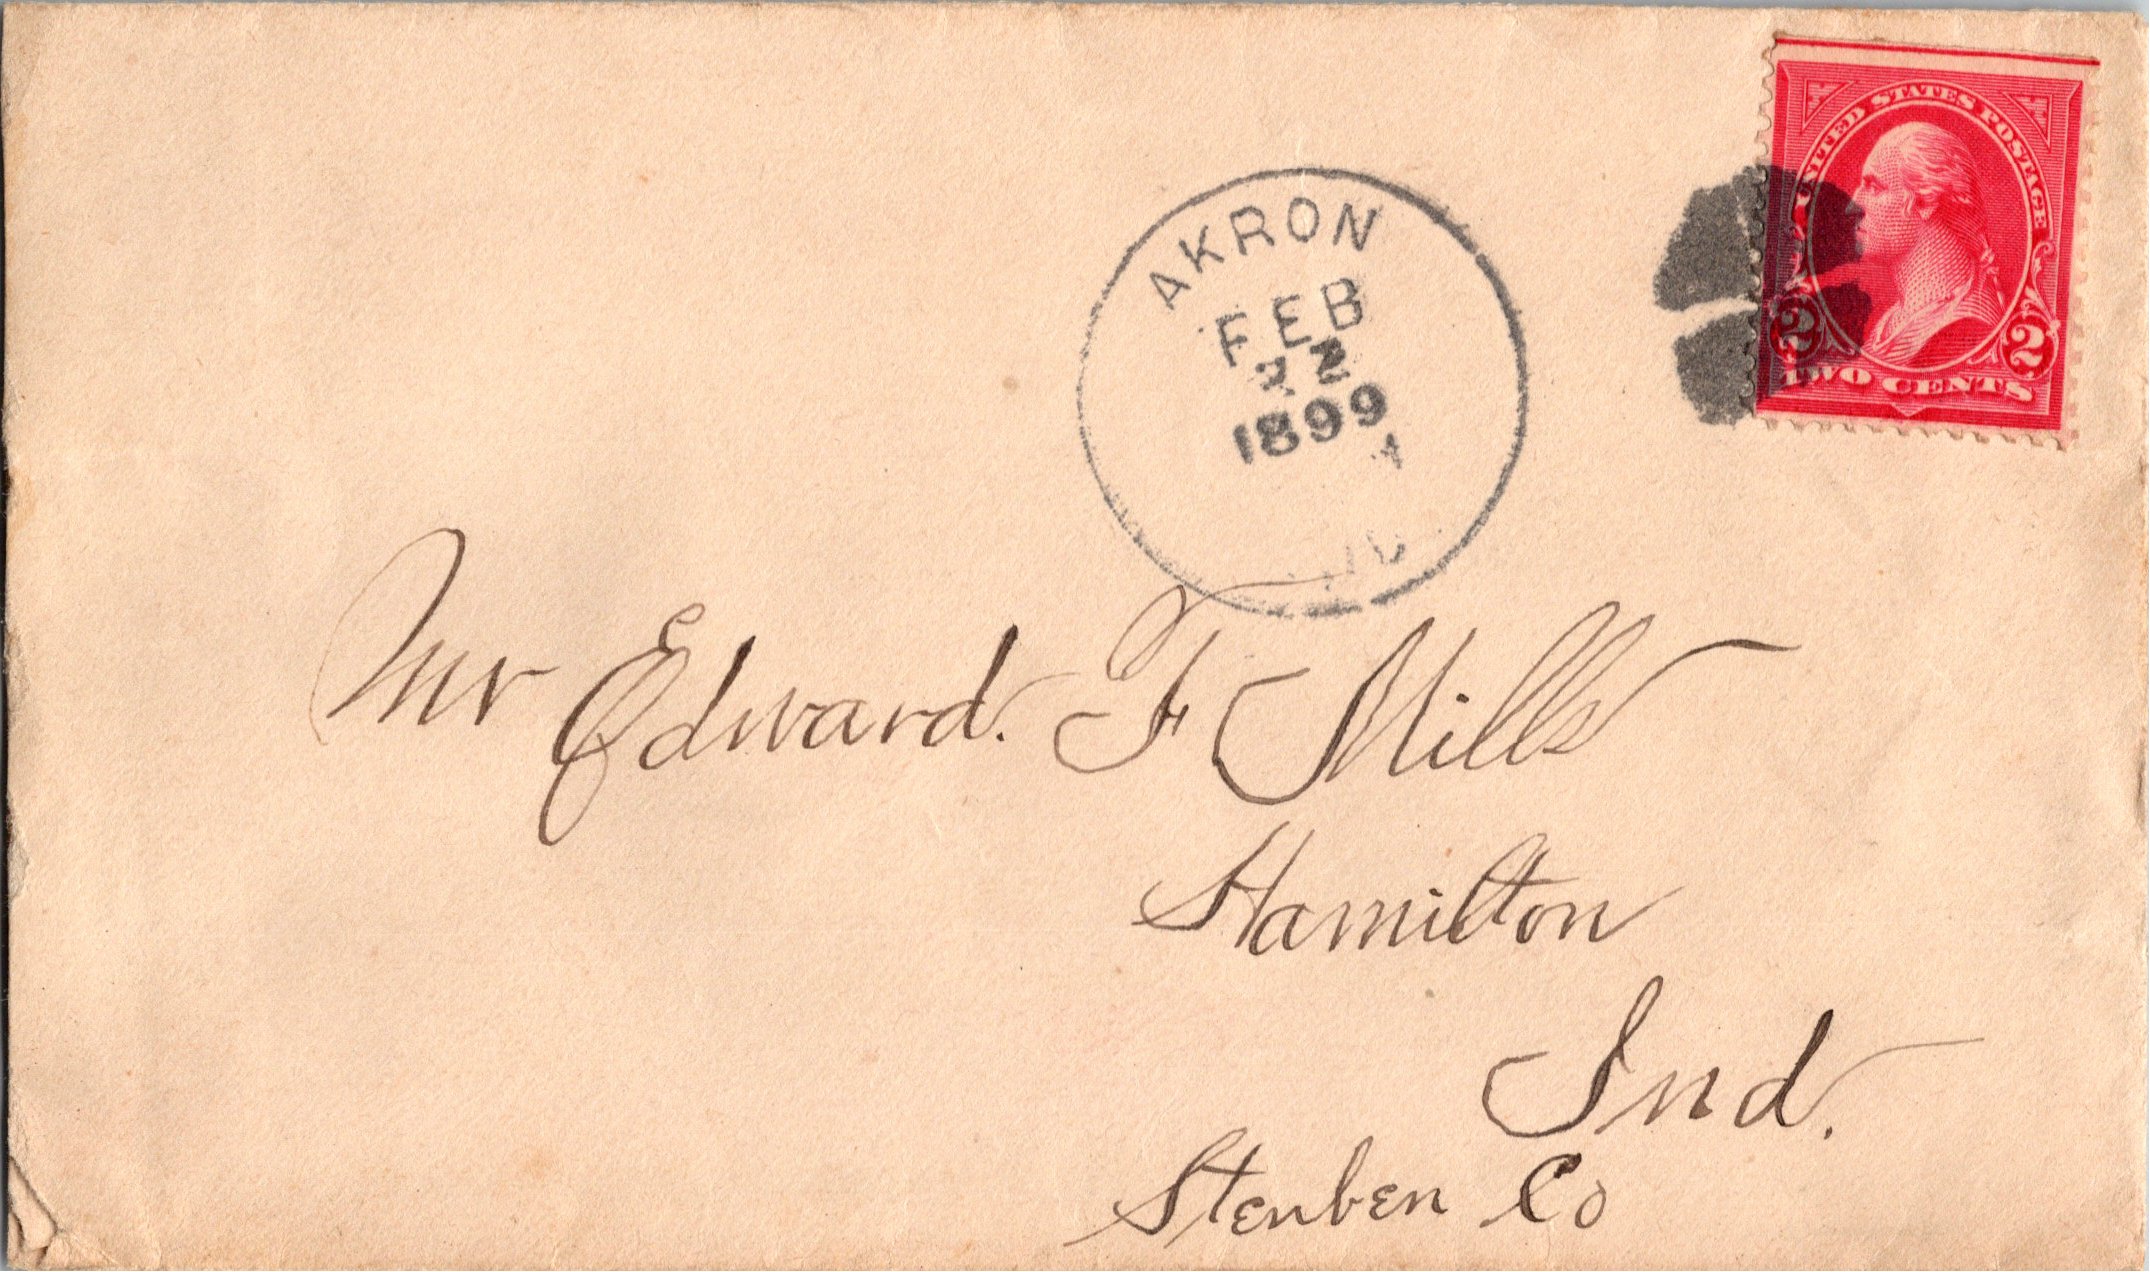 UNITED STATES POSTAGE
2 2
TWO CENTS
AKRON
FEB
22
1899
A
Mr Edward. F Mills
Hamilton
Ind.
Steuben Co